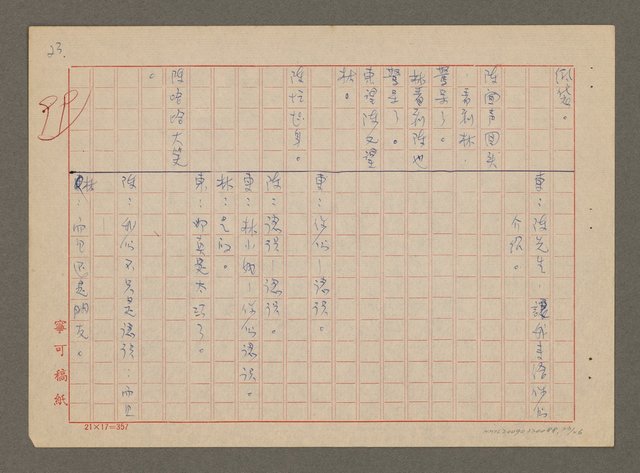 23.
陳聞聲回頭
看到林，
驚呆了。
林看到陳也
驚呆了。
東望陳又望
林。
陳哈哈大笑
。
東：陳先生，讓我來給你們
介紹。
東：你們－認識。
陳：認識，認識。
東：林小姐－你們認識。
林：是的。
東：那真是太巧了。
陳：我們不只是認識：而且
－
林：而且還是朋友。
寧可稿紙
21×17=357